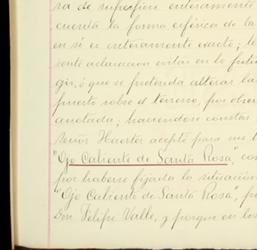 ra de superficie enteramente
cuenta la forma esférica de la
en si es enteramente exacto; la
sente actuacion evitar en lo futu
gir, ó que se pretenda alterar la
puesto sobre el terreno, por otra
anotada; haciendose constar
Señor Huerta acepto para sus
"Ojo Caliente de Santa Rosa", con
por haberse fijado la situacion
"Ojo Caliente de Santa Rosa", p
Don Felipe Valle, y porque en los